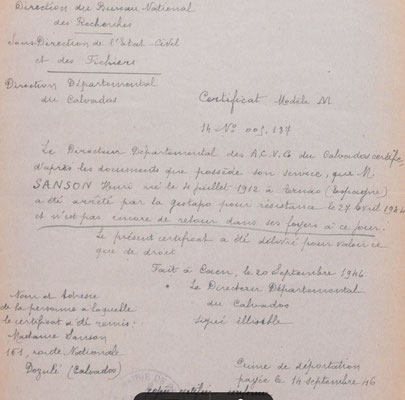 Direction du Bureau National
des Recherches
Sous Direction de l'Etat-Civil
et des Fichiers
Direction Départemental
du Calvados
Certificat Modèle M
14 No 005.137
Le Directeur Départemental des A.C.V.G du Calvados certifie
d'après les documents que possède son service, que M.
SANSON Henri né le 4 juillet 1912 à (Espagne)
a été arrêté par la gestapo pour résistance le 27 Avril 1944
et n'est pas encore de retour dans ses foyers à ce jour.
Le présent certificat a été délivré pour valoir ce
que de droit
Fait à Caen, le 20 Septembre 1946
Le Directeur Départemental
du Calvados
signé illisible
Nom et Adresse
de la personne à laquelle
le certificat a été remis:
Madame Sanson
161, route Nationale
Dozulé (Calvados)
Prime de déportation
payée le 14 septembre